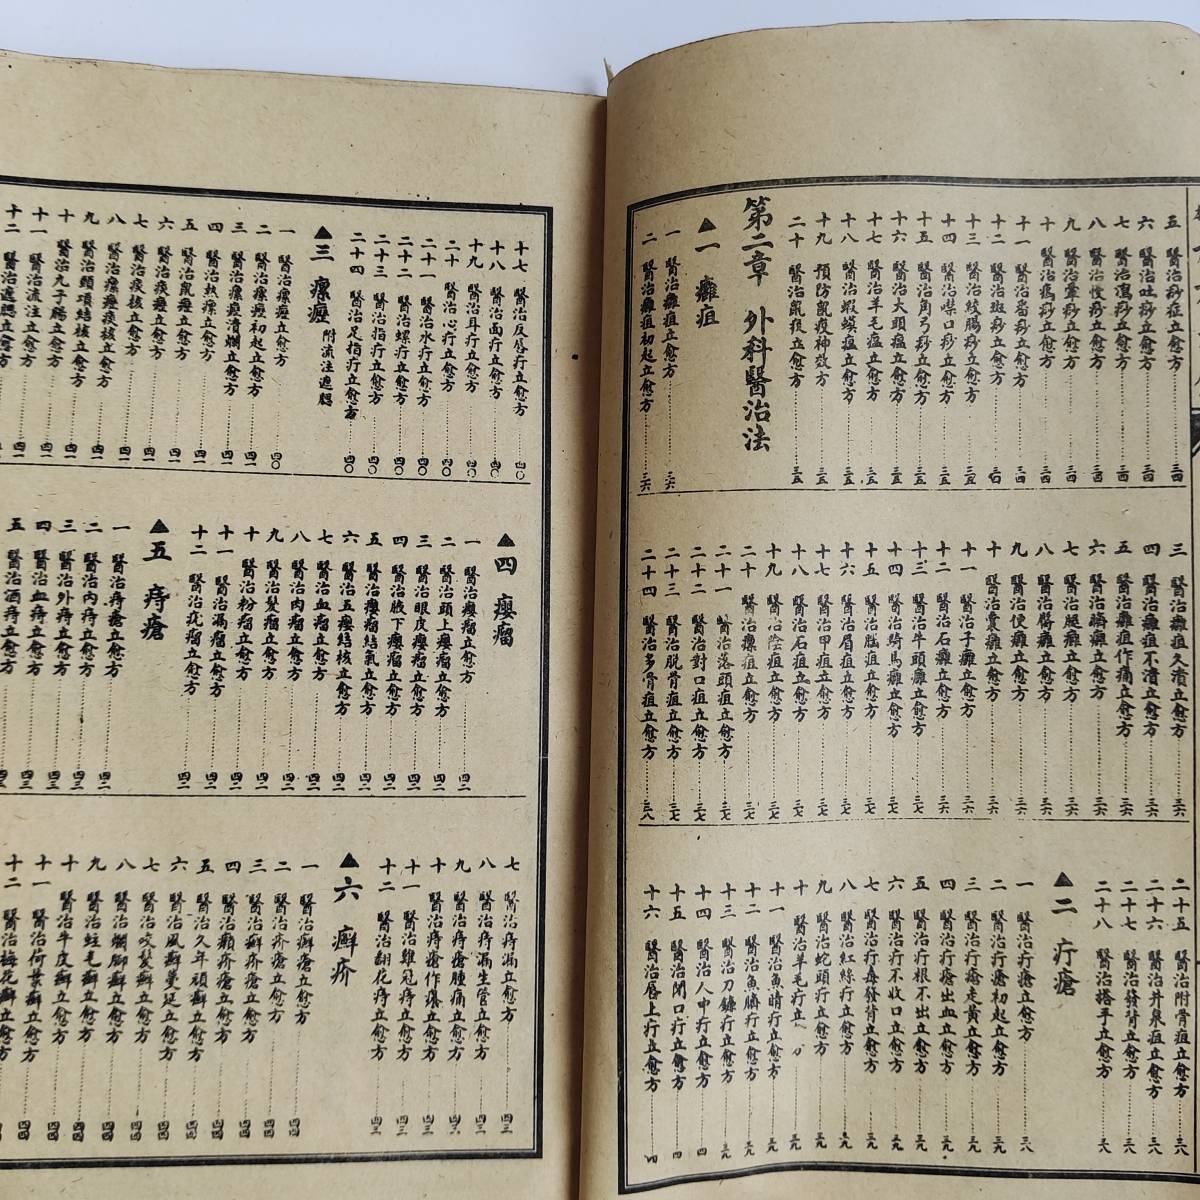 五 醫治痧症立愈方 三四
六 醫治吐痧立愈方 三四
七 醫治瀉痧立愈方 三四
八 醫治慢痧立愈方 三四
九 醫治暈痧立愈方 三四
十 醫治
十一 醫治悶痧立愈方 三四
十二 醫治斑痧立愈方
十三 醫治絞腸痧立愈方 三五
十四 醫治噤口痧立愈方 三五
十五 醫治角弓痧立愈方 三五
十六 醫治大頭瘟立愈方 三五
十七 醫治羊毛瘟立愈方 三五
十八 醫治蝦蟆瘟立愈方 三五
十九 預防鼠疫神效方 三五
二十 醫治鼠疫立愈方 三五
第二章 外科醫治法
▲一 癰疽
一 醫治癰疽立愈方 三六
二 醫治癰疽初起立愈方 三六
三 醫治癰疽久潰立愈方 三六
四 醫治癰疽不潰立愈方 三六
五 醫治癰疽作痛立愈方 三六
六 醫治臍癰立愈方 三六
七 醫治腿癰立愈方 三六
八 醫治臀癰立愈方 三六
九 醫治便癰立愈方 三六
十 醫治囊癰立愈方 三六
十一 醫治子癰立愈方 三六
十二 醫治石癰立愈方 三七
十三 醫治牛頭癰立愈方 三七
十四 醫治騎馬癰立愈方 三七
十五 醫治腦疽立愈方 三七
十六 醫治眉疽立愈方 三七
十七 醫治甲疽立愈方 三七
十八 醫治石疽立愈方 三七
十九 醫治陰疽立愈方 三七
二十 醫治瘭疽立愈方 三七
二十一 醫治落頭疽立愈方 三七
二十二 醫治對口疽立愈方 三七
二十三 醫治脫骨疽立愈方 三七
二十四 醫治多骨疽立愈方 三八
二十五 醫治附骨疽立愈方 三八
二十六 醫治井泉疽立愈方 三八
二十七 醫治發背立愈方 三八
二十八 醫治搭手立愈方 三八
▲二 疔瘡
一 醫治疔瘡立愈方 三八
二 醫治疔瘡初起立愈方 三九
三 醫治疔瘡走黃立愈方 三九
四 醫治疔瘡出血立愈方 三九
五 醫治疔根不出立愈方 三九
六 醫治疔不收口立愈方 三九
七 醫治疔毒發背立愈方 三九
八 醫治紅絲疔立愈方 三九
九 醫治蛇頭疔立愈方 三九
十 醫治羊毛疔立 方 三九
十一 醫治魚睛疔立愈方 三九
十二 醫治魚臍疔立愈方 三九
十三 醫治刀鐮疔立愈方 三九
十四 醫治人中疔立愈方 四
十五 醫治閉口疔立愈方 四
十六 醫治唇上疔立愈方 四
十七 醫治反唇疔立愈方 四〇
十八 醫治面疔立愈方 四〇
十九 醫治耳疔立愈方 四〇
二十 醫治心疔立愈方 四〇
二十一 醫治水疔立愈方 四〇
二十二 醫治螺疔立愈方 四〇
二十三 醫治指疔立愈方 四〇
二十四 醫治足指疔立愈方 四〇
▲三 瘰癧 附流注遮腮
一 醫治瘰癧立愈方 四〇
二 醫治瘰癧初起立愈方 四一
三 醫治瘰癧潰爛立愈方 四一
四 醫治熱瘰立愈方 四一
五 醫治鼠癧立愈方 四一
六 醫治痰癧立愈方 四一
七 醫治痰核立愈方 四一
八 醫治瘰癧痰核立愈方 四一
九 醫治頸項結核立愈方 四一
十 醫治九子瘍立愈方 四一
十一 醫治流注立愈方 四一
十二 醫治遮腮立愈方
▲四 癭瘤
一 醫治癭瘤立愈方 四二
二 醫治頭上癭瘤立愈方 四二
三 醫治眼皮癭瘤立愈方 四二
四 醫治腋下癭瘤立愈方 四二
五 醫治癭瘤結氣立愈方 四二
六 醫治五癭結核立愈方 四二
七 醫治血瘤立愈方 四二
八 醫治肉瘤立愈方 四二
九 醫治髮瘤立愈方 四二
十 醫治粉瘤立愈方 四二
十一 醫治漏瘤立愈方 四二
十二 醫治疣瘤立愈方 四二
▲五 痔瘡
一 醫治痔瘡立愈方 四二
二 醫治內痔立愈方 四三
三 醫治外痔立愈方 四三
四 醫治血痔立愈方 四三
五 醫治酒痔立愈方 四三
七 醫治痔漏立愈方 四三
八 醫治痔漏生管立愈方 四三
九 醫治痔瘡腫痛立愈方 四三
十 醫治痔瘡作癢立愈方 四三
十一 醫治雞冠痔立愈方 四三
十二 醫治翻花痔立愈方 四三
▲六 癬疥
一 醫治癬瘡立愈方 四四
二 醫治疥瘡立愈方 四四
三 醫治癬疥瘡立愈方 四四
四 醫治癩疥瘡立愈方 四四
五 醫治久年頑癬立愈方 四四
六 醫治風癬蔓延立愈方 四四
七 醫治咬髮癬立愈方 四四
八 醫治爛腳癬立愈方 四四
九 醫治蛀毛癬立愈方 四四
十 醫治牛皮癬立愈方 四四
十一 醫治荷葉癬立愈方 四四
十二 醫治梅花癬立愈方